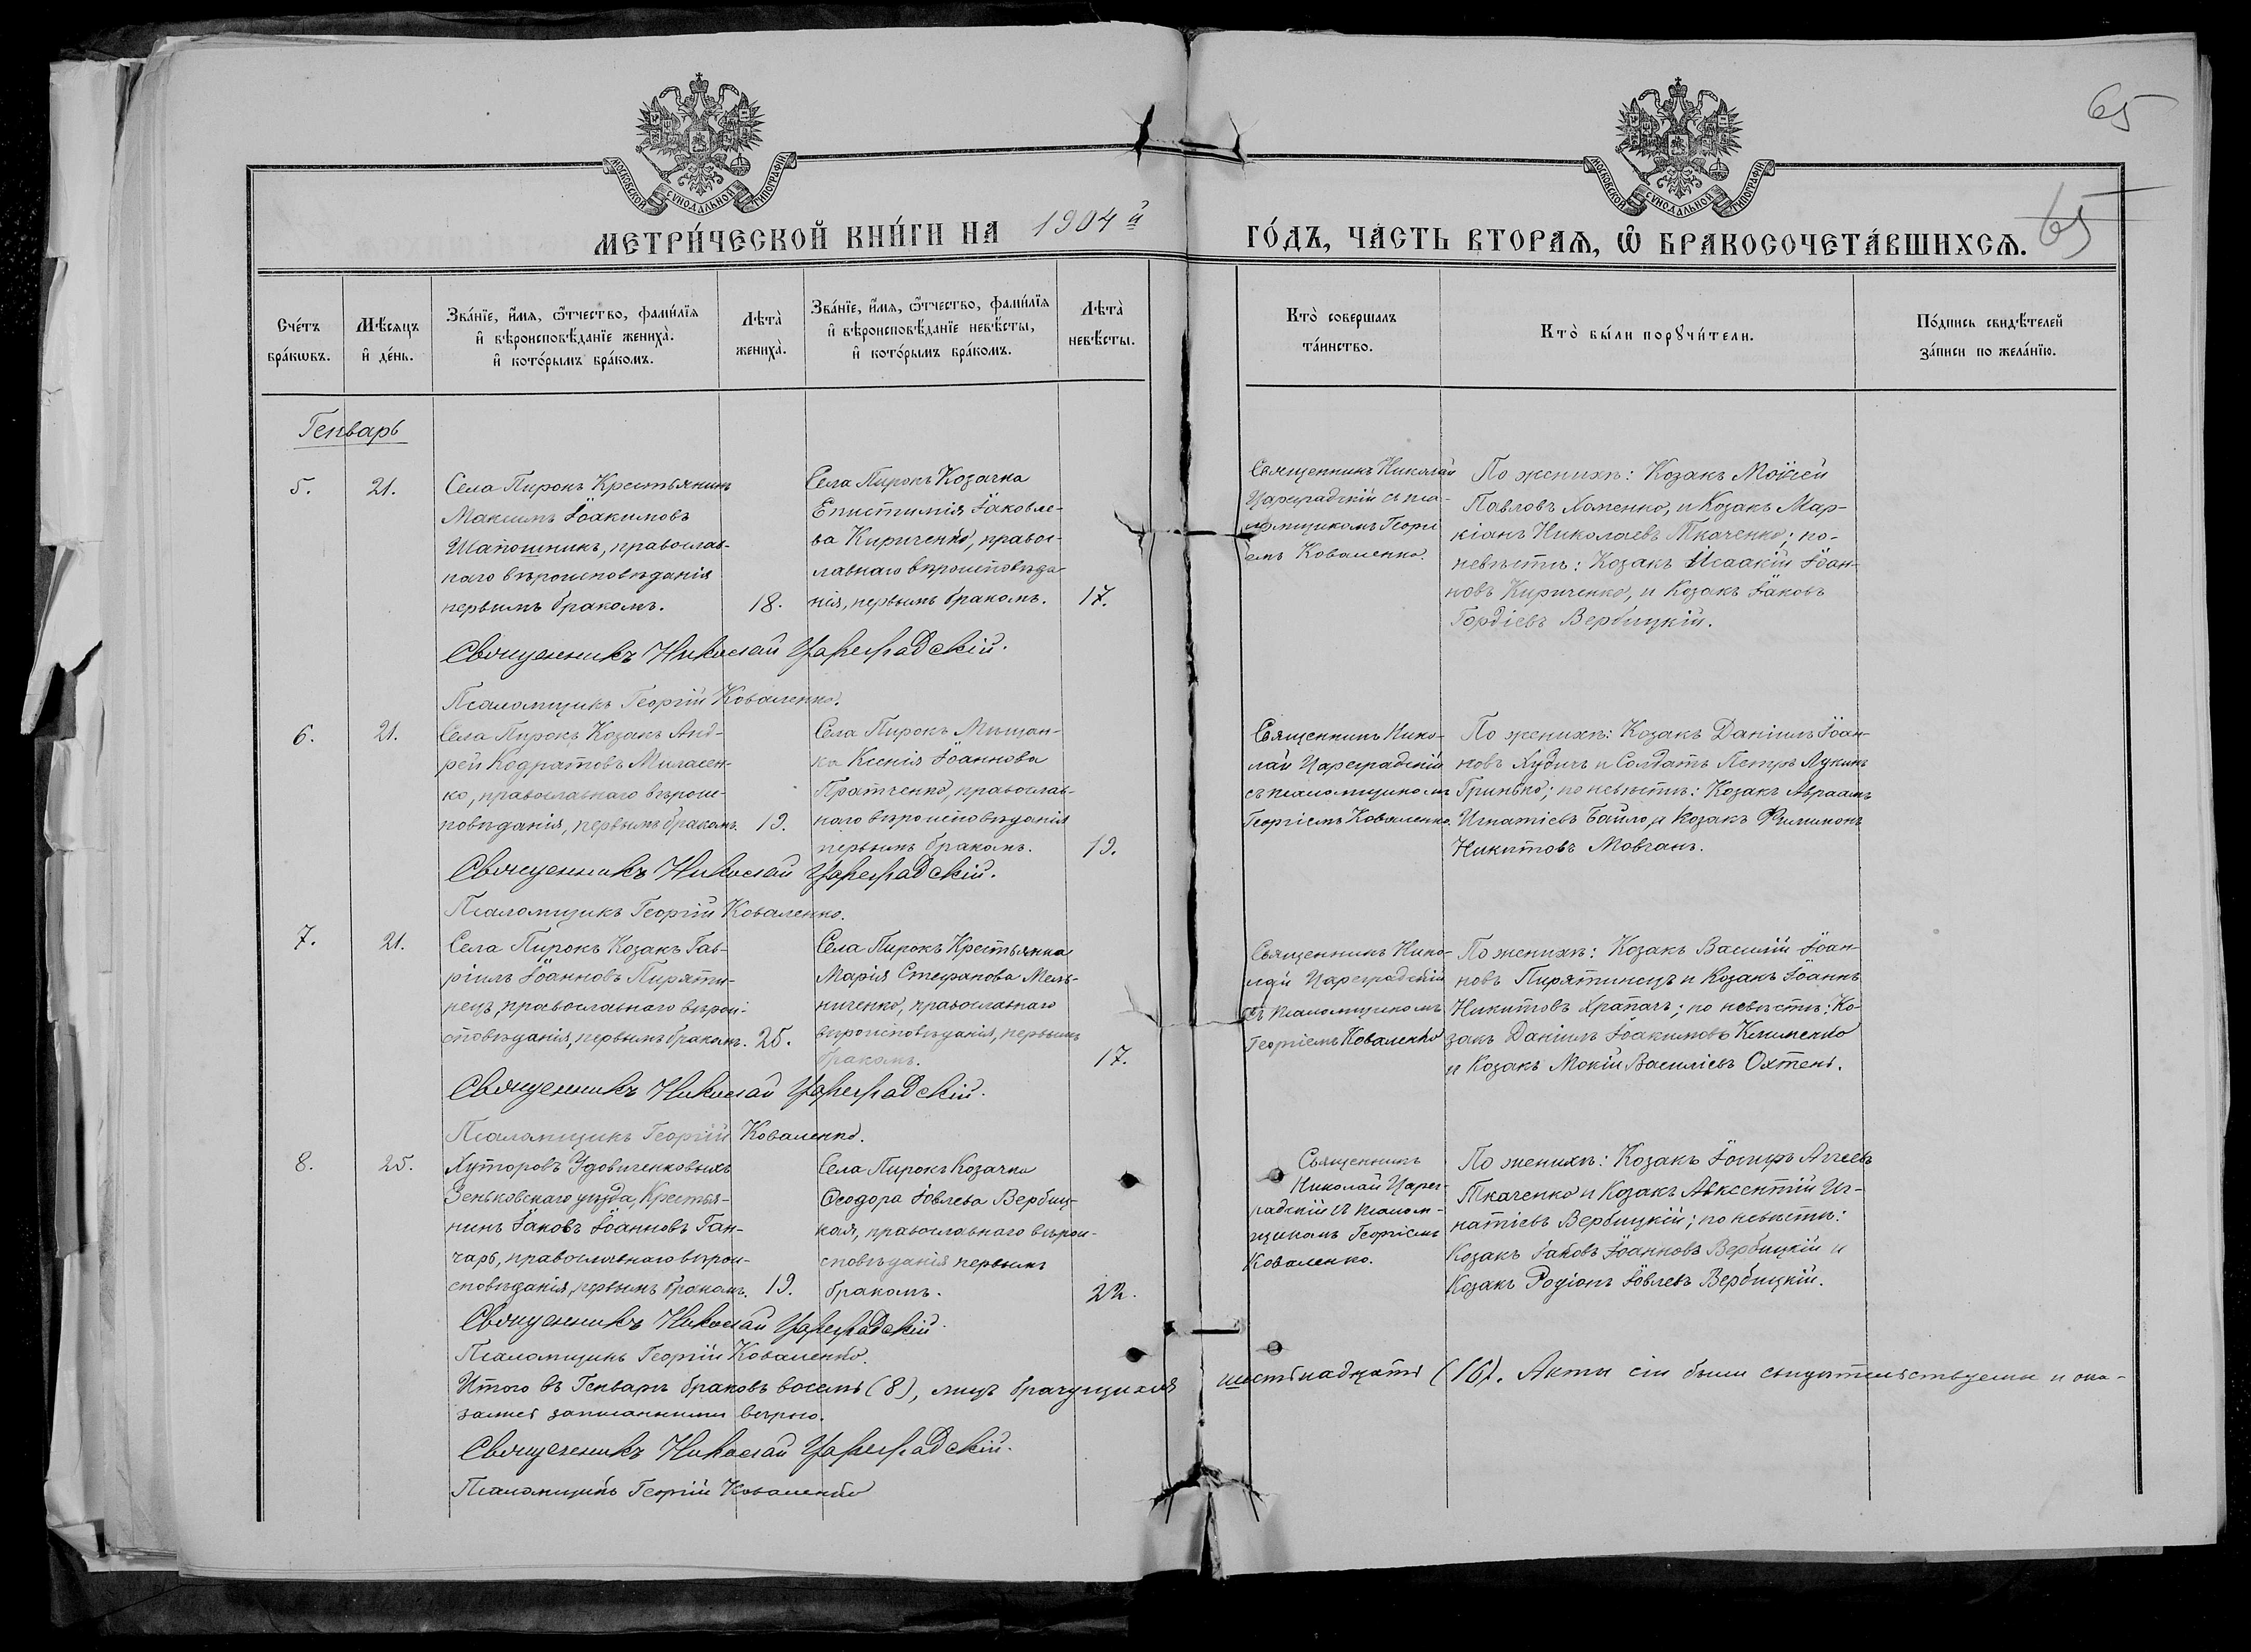 65
65
МОСКОВСКОЙ СѴНОДАЛЬНОЙ ТИПОГРАФІИ
МОСКОВСКОЙ СѴНОДАЛЬНОЙ ТИПОГРАФІИ
МЕТРИ́ЧЕСКОЙ КНИ́ГИ НА 1904й ГО́ДЪ, ЧА́СТЬ ВТОРАѦ, Ѽ БРАКОСОЧЕТА́ВШИХСѦ.
Сче́тъ
бра́кѡвъ.
Мѣ́сяцъ
и҆ де́нь.
Зва́нїе, и҆́мя, ѻ҆́тчество, фами́лїя
и҆ вѣроисповѣ́данїе жениха̀.
и҆ кото́рымъ бра́комъ.
Лѣта̀
жениха̀.
Зва́нїе, и҆́мя, ѻ҆́тчество, фами́лїя
и҆ вѣроисповѣ́данїе невѣ́сты,
и҆ кото́рымъ бра́комъ.
Лѣта̀
невѣ́сты.
Кто̀ совершалъ
та́инство.
Кто̀ бы́ли порꙋчи́тели.
По́дпись свидѣ́телей
за́писи по жела́нїю.
Генварь
5.
21.
Села Пирокъ Крестьянинъ
Максимъ Іоакимовъ
Шапошникъ, православ-
наго вѣроисповѣданія
первымъ бракомъ.
18.
Села Пирокъ Козачка
Епистимія Іаковле-
ва Кириченко, правос-
лавнаго вѣроисповѣда
нія, первымъ бракомъ.
17.
Священникъ Николай
Цареградскій съ пса-
ломщикомъ Георгі
емъ Коваленко.
По женихѣ: Козакъ Моѵсей
Павловъ Хоменко, и Козакъ Мар-
кіанъ Николаевъ Ткаченко; по-
невѣстѣ: Козакъ Исаакій Іоан-
новъ Кириченко, и Козакъ Іаковъ
Гордіевъ Вербицкій.
Священникъ Николай Цареградскій.
Псаломщикъ Георгій Коваленко.
6.
21.
Села Пирокъ Козакъ Анд-
рей Кодратовъ Миласен-
ко, православнаго вѣроис-
повѣданія, первымъ бракомъ.
19.
Села Пирокъ Мѣщан-
ка Ксенія Іоаннова
Пратченко, православ-
наго вѣроисповѣданія
первымъ бракомъ.
19.
Священникъ Нико-
лай Цареградскій
съ псаломщикомъ
Георгіемъ Коваленко.
По женихѣ: Козакъ Даніилъ Іоан-
новъ Худичъ и Солдатъ Петръ Лукинъ
Гринько; по невѣстѣ: Козакъ Авраамъ
Игнатіевъ Байло, и Козакъ Филимонъ
Никитовъ Мовчанъ.
Священникъ Николай Цареградскій.
Псаломщикъ Георгій Коваленко.
7.
21.
Села Пирокъ Козакъ Гав-
ріилъ Іоанновъ Пиряти-
нецъ, православнаго вѣрои-
сповѣданія, первымъ бракомъ.
25.
Села Пирокъ Крестьянка
Марія Стефанова Мель-
ниченко, православнаго
вѣроисповѣданія, первымъ
бракомъ.
17.
Священникъ Нико-
лай Цареградскій
съ псаломщикомъ
Георгіемъ Коваленко
По женихѣ: Козакъ Василій Іоан-
новъ Пирятинецъ и Козакъ Іоаннъ
Никитовъ Храпачъ; по невѣстѣ: Ко-
закъ Даніилъ Іоакимовъ Клименко
и Козакъ Мокій Василіевъ Охтень.
Священникъ Николай Цареградскій.
Псаломщикъ Георгій Коваленко.
8.
25.
Хуторовъ Удовиченковыхъ
Зеньковскаго уѣзда, Крестья-
нинъ Іаковъ Іоанновъ Ган-
чаръ, православнаго вѣрои-
сповѣданія, первымъ бракомъ.
19.
Села Пирокъ Козачка
Ѳеодора Іовлева Вербиц-
кая, православнаго вѣрои-
сповѣданія первымъ
бракомъ.
22.
Священникъ
Николай Царег-
радскій съ псалом-
щикомъ Георгіемъ
Коваленко.
По женихѣ: Козакъ Іосифъ Аггеевъ
Ткаченко и Козакъ Авксентій Иг-
натіевъ Вербицкій; по невѣстѣ:
Козакъ Іаковъ Іоанновъ Вербицкій и
Козакъ Родіонъ Іовлевъ Вербицкій.
Священникъ Николай Цареградскій.
Псаломщикъ Георгій Коваленко.
Итого въ Генварѣ браковъ восемь (8), лицъ брачущихся шестьнадцать (16). Акты сіи были свидѣтельствуемы и ока-
зались записанными вѣрно.
Священникъ Николай Цареградскій.
Псаломщикъ Георгій Коваленко